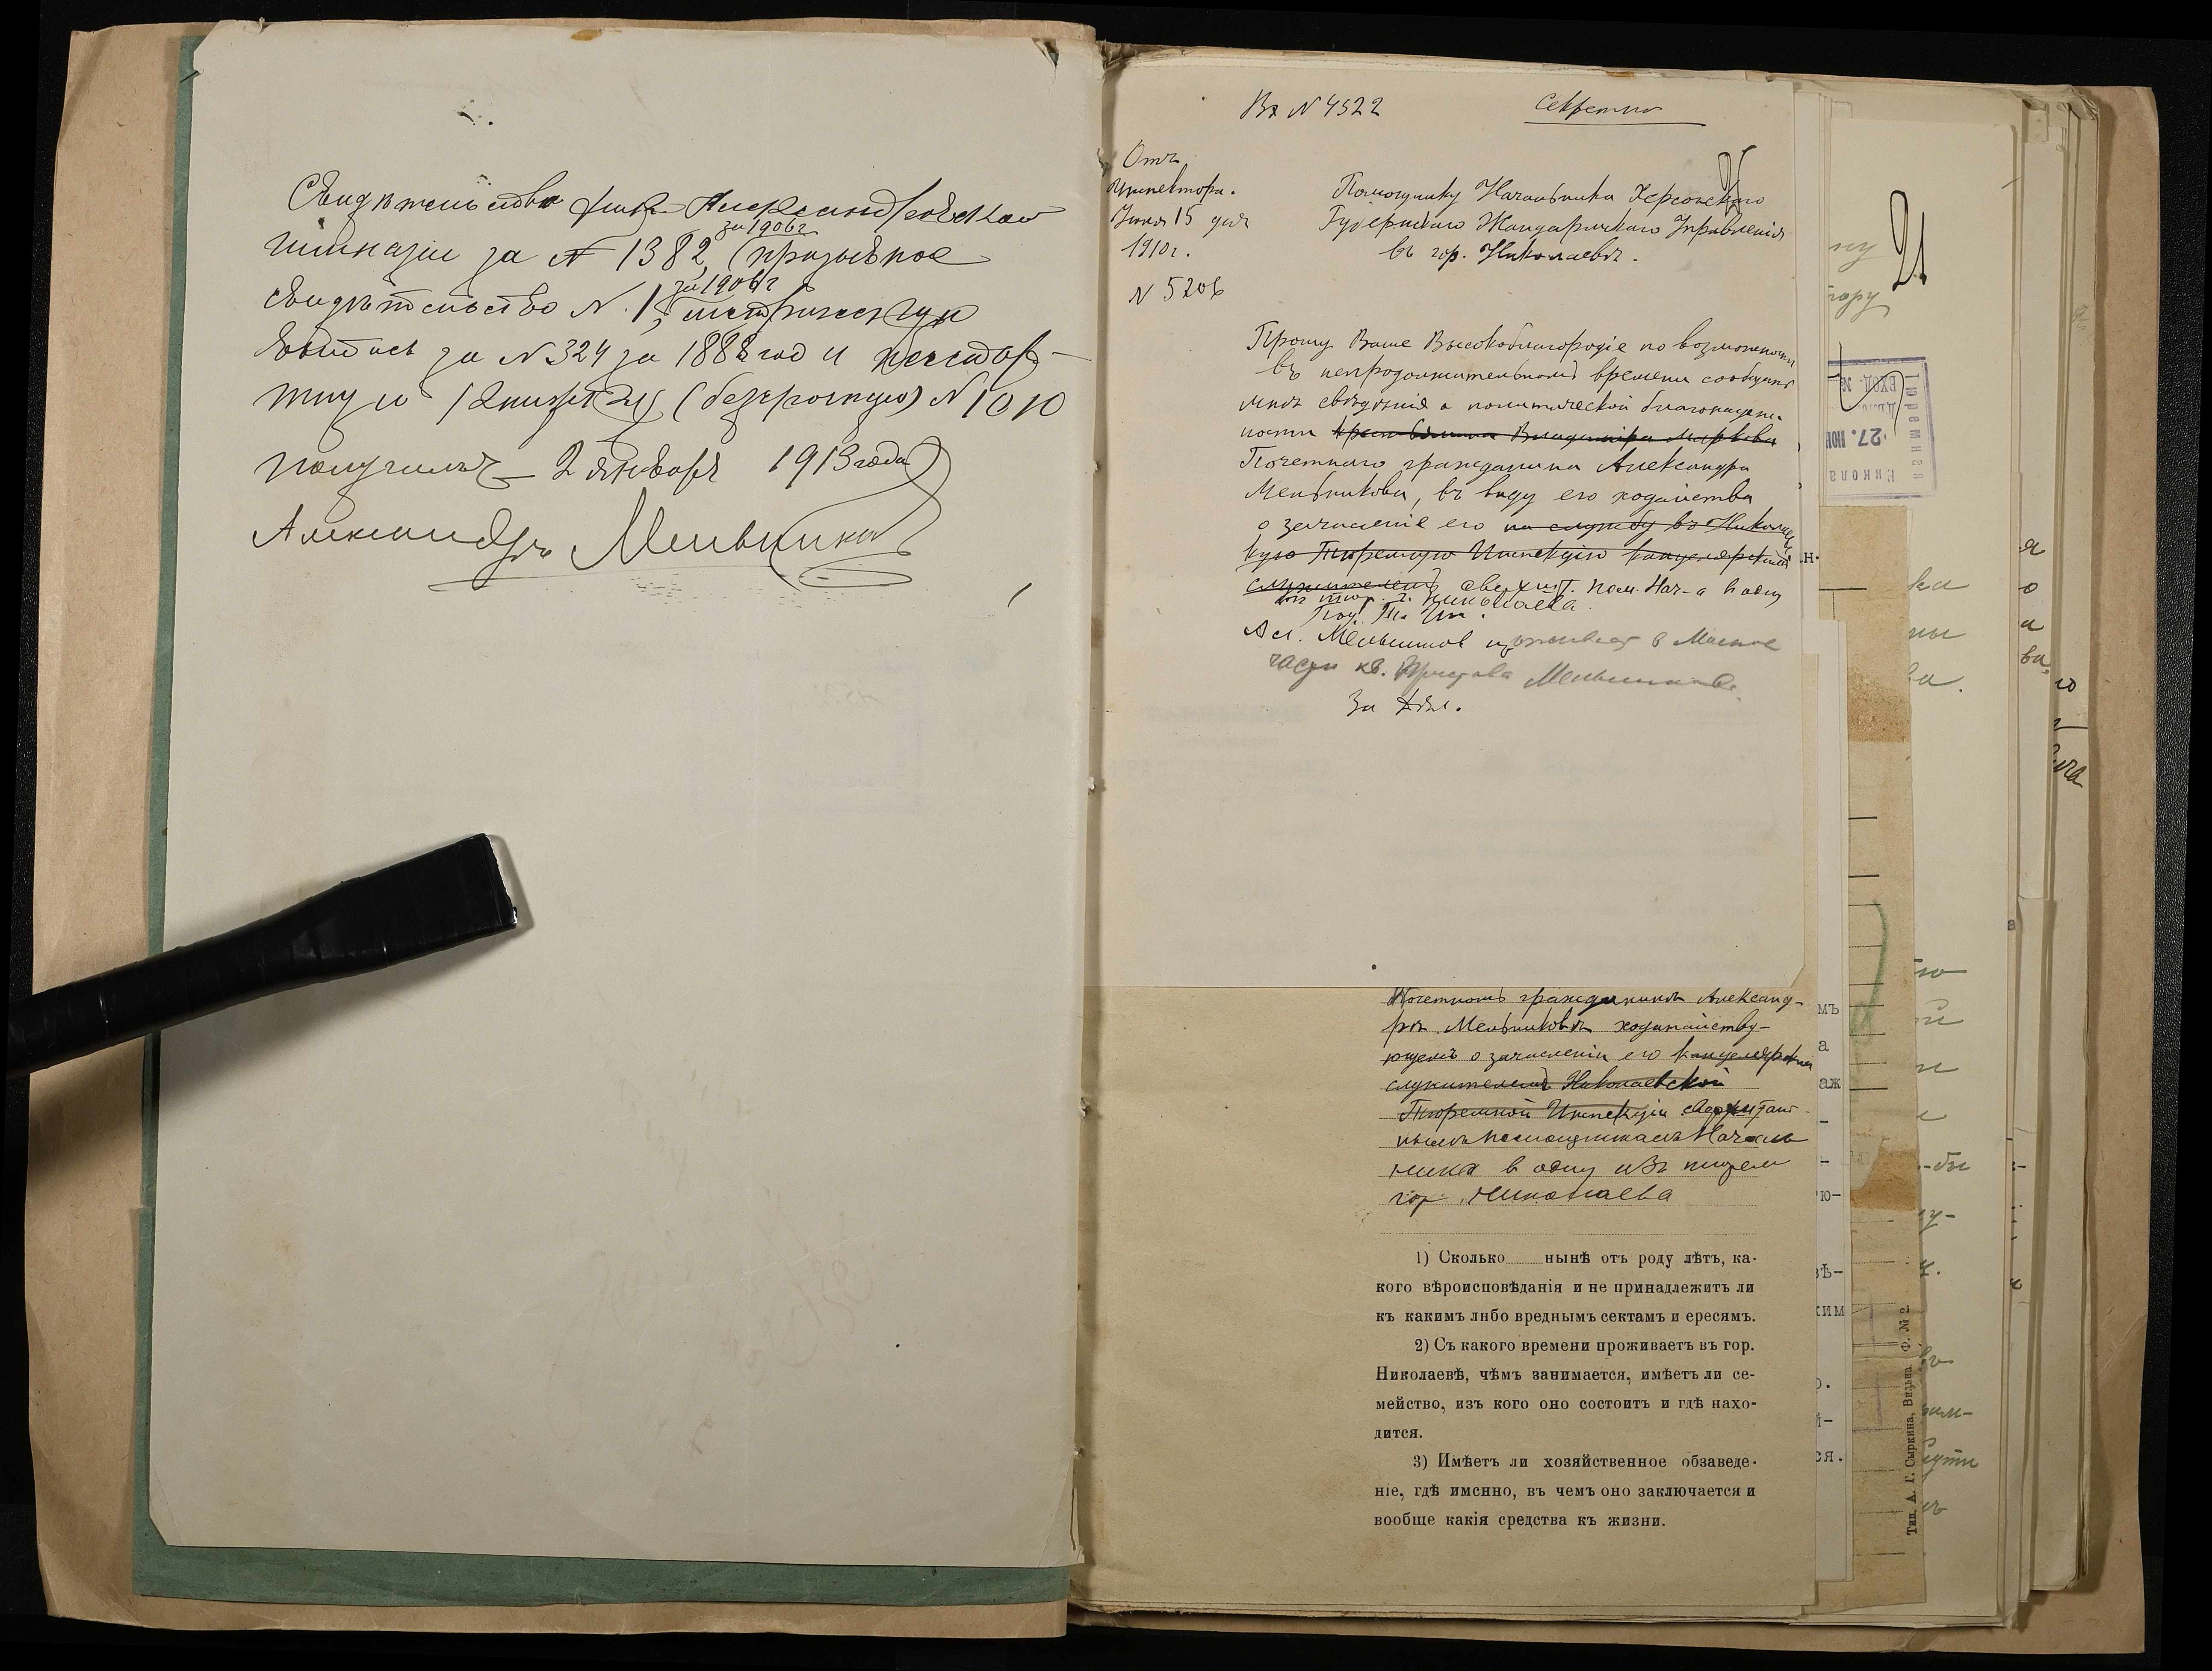 Свидѣтельство Александровской
гимназіи за № 1382 за 1906 г (призывное
свидѣтельство № 15 за 1906 г метрическую
выпись за № 324 за 1888 год и
книжку (безсрочную) № 1010
получилъ 2 января 1913 года
Александръ Мельников
Вх № 4522
Секретно
Отъ
Инспектора.
Іюня 15 дня
1910 г.
№ 5206
Помощнику Начальника Херсонскаго
Губернскаго Жандармскаго Управленія
въ гор. Николаевѣ.
Прошу Ваше Высокоблагородіе по возможности
въ непродолжительномъ времени сообщить
мнѣ свѣдѣнія о политической благонадеж-
ности крестьянина Владиміра Маркова
Почетнаго гражданина Александра
Мельникова, въ виду его ходатайства
о зачисленіе его на службу въ Николаевс
кую Тюремную Инспекцію канцелярскимъ
служителемъ сверхшт. пом. Нач-а в одну
из тюр. г. Николаева.
Под. Тю. Ин.
Ал. Мельников проживает в Моск
части кв. Пристава Мельникова.
За Дѣл.
Почетномъ гражданинѣ Александ-
рѣ Мельниковѣ ходатайству-
ющемъ о зачисленіи его канцелярским
служителемъ Николаевской
Тюремной Инспекціи сверхштат-
нымъ помощникамъ Началь
ника в одну изъ тюрем
гор. Николаева
1) Сколько нынѣ отъ роду лѣтъ, ка-
кого вѣроисповѣданія и не принадлежитъ ли
къ какимъ либо вреднымъ сектамъ и ересямъ.
2) Съ какого времени проживаетъ въ гор.
Николаевѣ, чѣмъ занимается, имѣетъ ли се-
мейство, изъ кого оно состоитъ и гдѣ нахо-
дится.
3) Имѣетъ ли хозяйственное обзаведе-
ніе, гдѣ именно, въ чемъ оно заключается и
вообще какія средства къ жизни.
21
Тип. А. Г. Сыркина, Вильна. Ф. № 2.